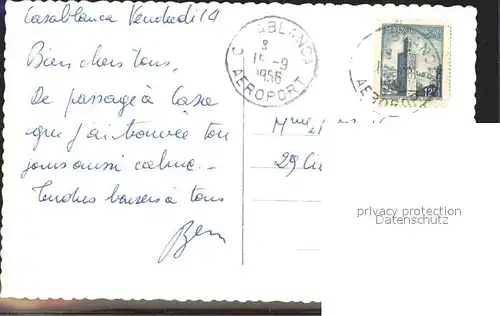 Casablanca Vendredi 14
Bien chers tous,
De passage à Casa
que j'ai trouvée tou
jours aussi calme. -
Tendres baisers à tous
Ben
CASABLANCA
15-9
1956
AEROPORT
MAROC
12F
AEROPORT
Mme
29
privacy protection
Datenschutz